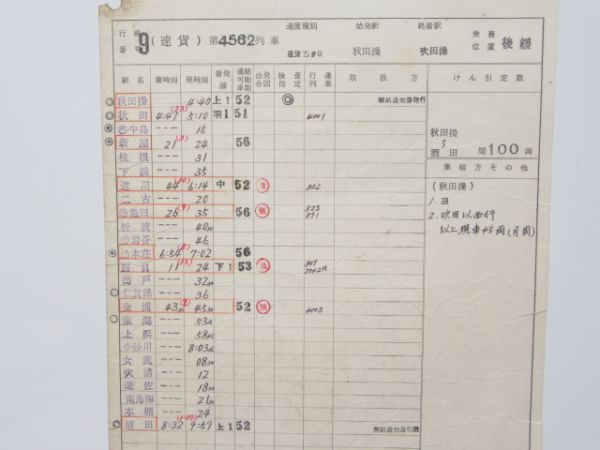 行路番号 9 (速貨) 第4562列車 速度種別 始発駅 終着駅 乗務位置 後緩
秋田操 吹田操
駅名 着時間 発時間 着発線 連結可能車数 出発合図 検査指定 行違列車 取扱方 けん引定数
秋田操 4:40 上1 52 ◎ 解結通知書発行
秋田 4:47 5:10 羽1 51 4001
牛島 --- 15
新屋 21 24 56
桂根 --- 31
下浜 --- 35
道川 44 6:14 中 52
二古 --- 20
亀田 26 35 56
折渡 --- 40
岩谷 --- 46
本荘 6:54 7:02 56
西目 11 24 下1 53
出戸 --- 32
仁賀保 --- 36
金浦 43 45 52 4003
象潟 --- 53
上浜 --- 58
小砂川 --- 8:03
女鹿 --- 08
吹浦 --- 12
遊佐 --- 18
南鳥海 --- 21
本楯 --- 24
酒田 8:32 9:59 上1 52
秋田操
酒田 間 100 両
集結方その他
(秋田操)
1. ヨ
2. 吹田以西行
以上現車45両